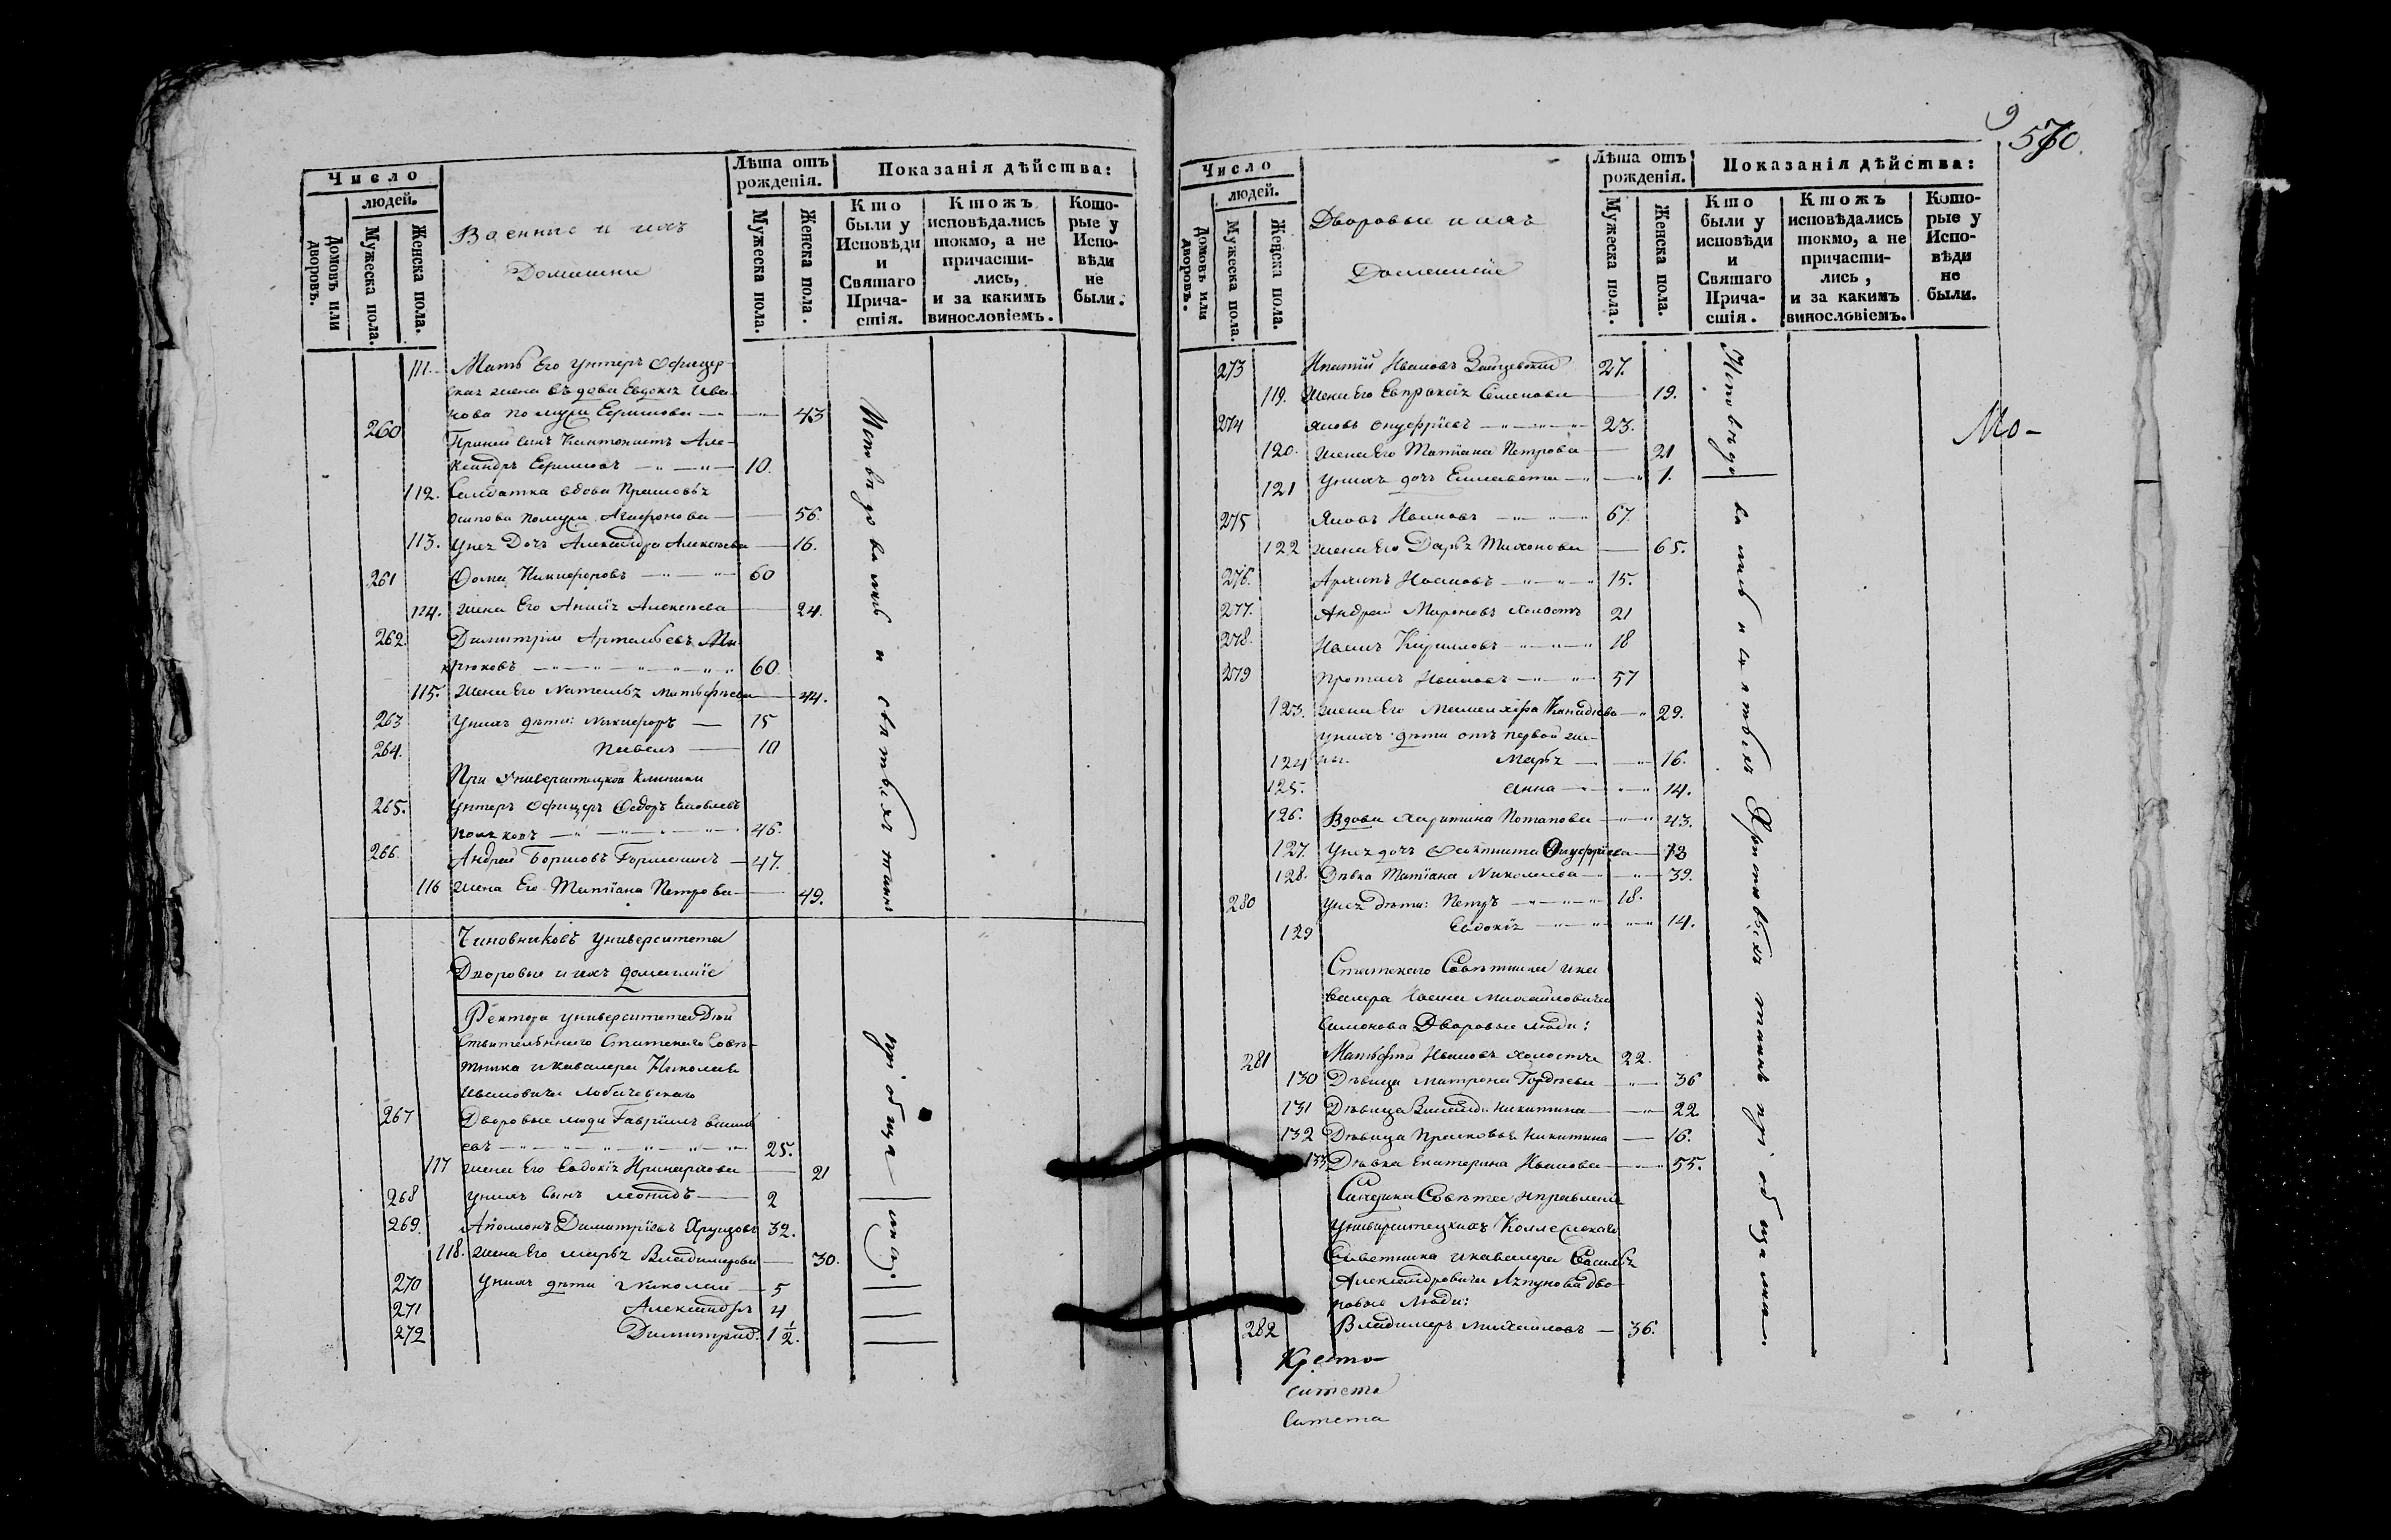 Число
людей.
Домовъ или дворовъ.
Мужеска пола.
Женска пола.
Военные и ихъ
Домашніе
Лѣта отъ рожденія.
Мужеска пола.
Женска пола.
Показанія дѣйства:
Кто были у Исповѣди и Святаго Прича-стія.
Ктожъ исповѣдались токмо, а не причасти-лись, и за какимъ винословіемъ.
Кото-рые у Испо-вѣди не были.
111. Мать Его Унтеръ Офицер-
ская жена вдова Евдокія Ива-
нова по мужѣ Ефимова 43
260 Пріимный сынъ Кантонистъ Але-
ксандръ Ефимовъ 10.
112. Солдатка вдова Прасковья
Осипова по мужѣ Агафонова 56.
113. У нея Дочь Александра Алексѣева 16.
261 Фома Никифоровъ 60
114. Жена Его Алексѣева 24.
262. Димитрій Артемьевъ
крюковъ 60
115. Жена Его Наталья Матвѣева 44.
263 У нихъ дѣти: Никифоръ 15
264. Павелъ 10
При Университецкой Клиники
265. Унтеръ Офицеръ Федоръ
46.
266. Андрей Борисовъ 47.
116 Жена Его Татіана Петрова 49.
Чиновниковъ Университета
Дворовые и ихъ домашніе
Ректора Университета Дѣй
ствительнаго Статскаго Совѣ-
тника и Кавалера Николая
Ивановича Лобачевскаго
267 Дворовые люди Гавріилъ Василь
евъ 25.
117 Жена Его Евдокія 21
268 У нихъ сынъ Леонидъ 2
269. Аполонъ Димитріевъ 32.
118. Жена Его Марья Владимирова 30.
270 У нихъ дѣти Николай 5
271 Александръ 4
272 Димитрій. 1 1/2.
Исповѣдовались и святыхъ таинъ
пріобща-
лись.
9
570.
Число
людей.
Домовъ или дворовъ.
Мужеска пола.
Женска пола.
Дворовые и ихъ
Домашніе
Лѣта отъ рожденія.
Мужеска пола.
Женска пола.
Показанія дѣйства:
Кто были у исповѣди и Святаго Прича-стія.
Ктожъ исповѣдались токмо, а не причасти-лись, и за какимъ винословіемъ.
Кото-рые у Испо-вѣди не были.
273 Ипатій Ивановъ 27.
119. Жена Его Евпраксія Семенова 19.
274 Яковъ Онуфріевъ 23.
120. Жена Его Татіана Петрова 21
121 У нихъ дочь Елисавета 1.
275 Яковъ Ивановъ 67
122 Жена Его Дарья Тихонова 65.
276. Архипъ Ивановъ 15.
277. Андрей Мироновъ холостъ 21
278. Иванъ Кирилловъ 18
279 Ивановъ 57
123. Жена Его 29.
У нихъ дѣти отъ первой же-
124 ны. Марья 16.
125. Анна 14.
126. Вдова Харитина Потапова 43.
127. У нея дочь Феоктиста Онуфріева 13
128. Дѣвка Татіана Николаева 39.
280 У нея дѣти: Петръ 18.
129 Евдокія 14.
Статскаго Совѣтника и ка
валера Ивана Михайловича
Симонова Дворовые люди:
281 Матвѣй Ивановъ холостъ 22.
130 Дѣвица Матрона Гордѣева 36
131 Дѣвица Никитина 22.
132 Дѣвица Прасковья Никитина 16.
133 Дѣвка Екатерина Иванова 55.
Синдика Совѣта и правленія
Университецкихъ Коллежскаго
Совѣтника и кавалера Василья
Александровича Ляпунова дво-
ровые люди:
282 Владимеръ Михайловъ 36.
Исповѣдовались и святыхъ Христовыхъ таинъ пріобщались.
Мо-
Кресто